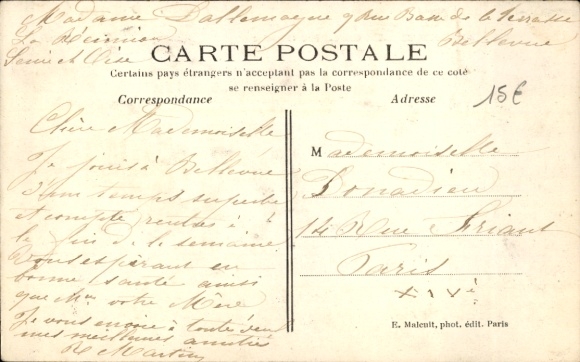 Madame Dallemagne 9 Rue Basse de la Terrasse
La Réunion Bellevue
Seine et Oise
CARTE POSTALE
Certains pays étrangers n'acceptant pas la correspondance de ce coté
se renseigner à la Poste
Correspondance
Adresse
15€
Chère Mademoiselle
Je jouis à Bellevue
d'un temps superbe
et compte rentrer à
la fin de la semaine
Vous espérant en
bonne santé ainsi
que Mme votre Mère
Je vous envoie à toutes deux
mes meilleures amitiés
R Martin
Mademoiselle
Donadieu
12 Rue Friant
Paris
XIVè
E. Malcuit, phot. édit. Paris